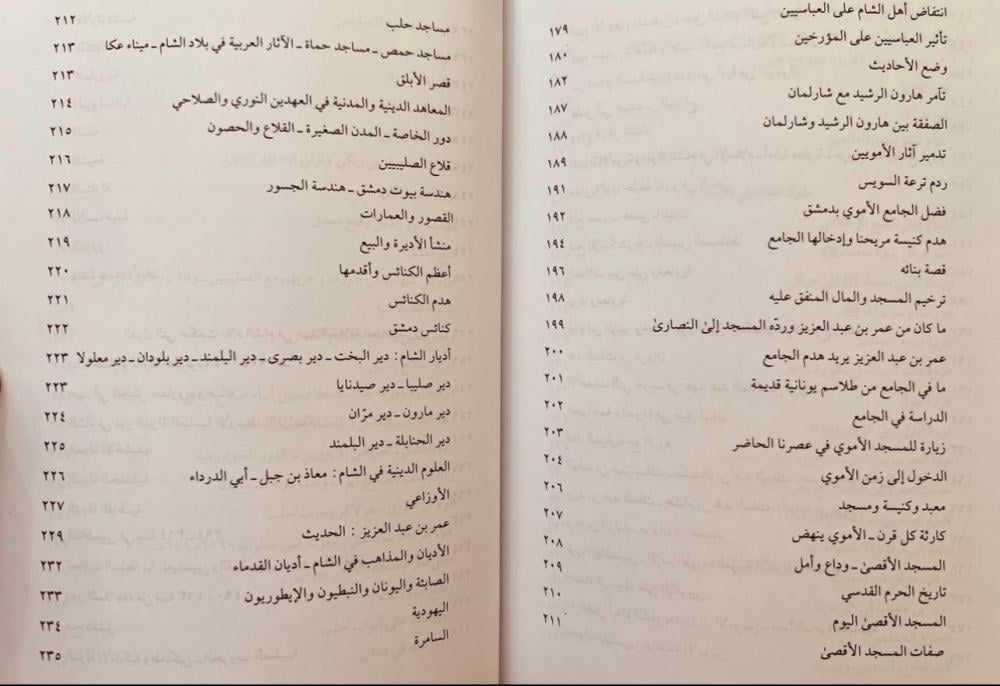 انتفاض أهل الشام على العباسيين ١٧٩
تأثير العباسيين على المؤرخين ١٨٠
وضع الأحاديث ١٨٢
تآمر هارون الرشيد مع شارلمان ١٨٧
الصفقة بين هارون الرشيد وشارلمان ١٨٨
تدمير آثار الأمويين ١٨٩
ردم ترعة السويس ١٩١
فضل الجامع الأموي بدمشق ١٩٢
هدم كنيسة مريحنا وإدخالها الجامع ١٩٤
قصة بنائه ١٩٦
ترخيم المسجد والمال المنفق عليه ١٩٨
ما كان من عمر بن عبد العزيز وردّه المسجد إلىٰ النصارىٰ ١٩٩
عمر بن عبد العزيز يريد هدم الجامع ٢٠٠
ما في الجامع من طلاسم يونانية قديمة ٢٠١
الدراسة في الجامع ٢٠٢
زيارة للمسجد الأموي في عصرنا الحاضر ٢٠٣
الدخول إلى زمن الأموي ٢٠٤
معبد وكنيسة ومسجد ٢٠٦
كارثة كل قرن ـ الأموي ينهض ٢٠٧
المسجد الأقصىٰ ـ وداع وأمل ٢٠٨
تاريخ الحرم القدسي ٢٠٩
المسجد الأقصىٰ اليوم ٢١٠
صفات المسجد الأقصىٰ ٢١١
مساجد حلب ٢١٢
مساجد حمص ـ مساجد حماة ـ الآثار العربية في بلاد الشام ـ ميناء عكا ٢١٣
قصر الأبلق ٢١٣
المعاهد الدينية والمدنية في العهدين النوري والصلاحي ٢١٤
دور الخاصة ـ المدن الصغيرة ـ القلاع والحصون ٢١٥
قلاع الصليبيين ٢١٦
هندسة بيوت دمشق ـ هندسة الجسور ٢١٧
القصور والعمارات ٢١٨
منشأ الأديرة والبيع ٢١٩
أعظم الكنائس وأقدمها ٢٢٠
هدم الكنائس ٢٢١
كنائس دمشق ٢٢٢
أديار الشام: دير البخت ـ دير بصرى ـ دير البلمند ـ دير بلودان ـ دير معلولا ٢٢٣
دير صليبا ـ دير صيدنايا ٢٢٣
دير مارون ـ دير مرّان ٢٢٤
دير الحنابلة ـ دير البلمند ٢٢٥
العلوم الدينية في الشام: معاذ بن جبل ـ أبي الدرداء ٢٢٦
الأوزاعي ٢٢٧
عمر بن عبد العزيز : الحديث ٢٢٩
الأديان والمذاهب في الشام ـ أديان القدماء ٢٣٢
الصابئة واليونان والنبطيون والإيطوريون ٢٣٣
اليهودية ٢٣٤
السامرة ٢٣٥